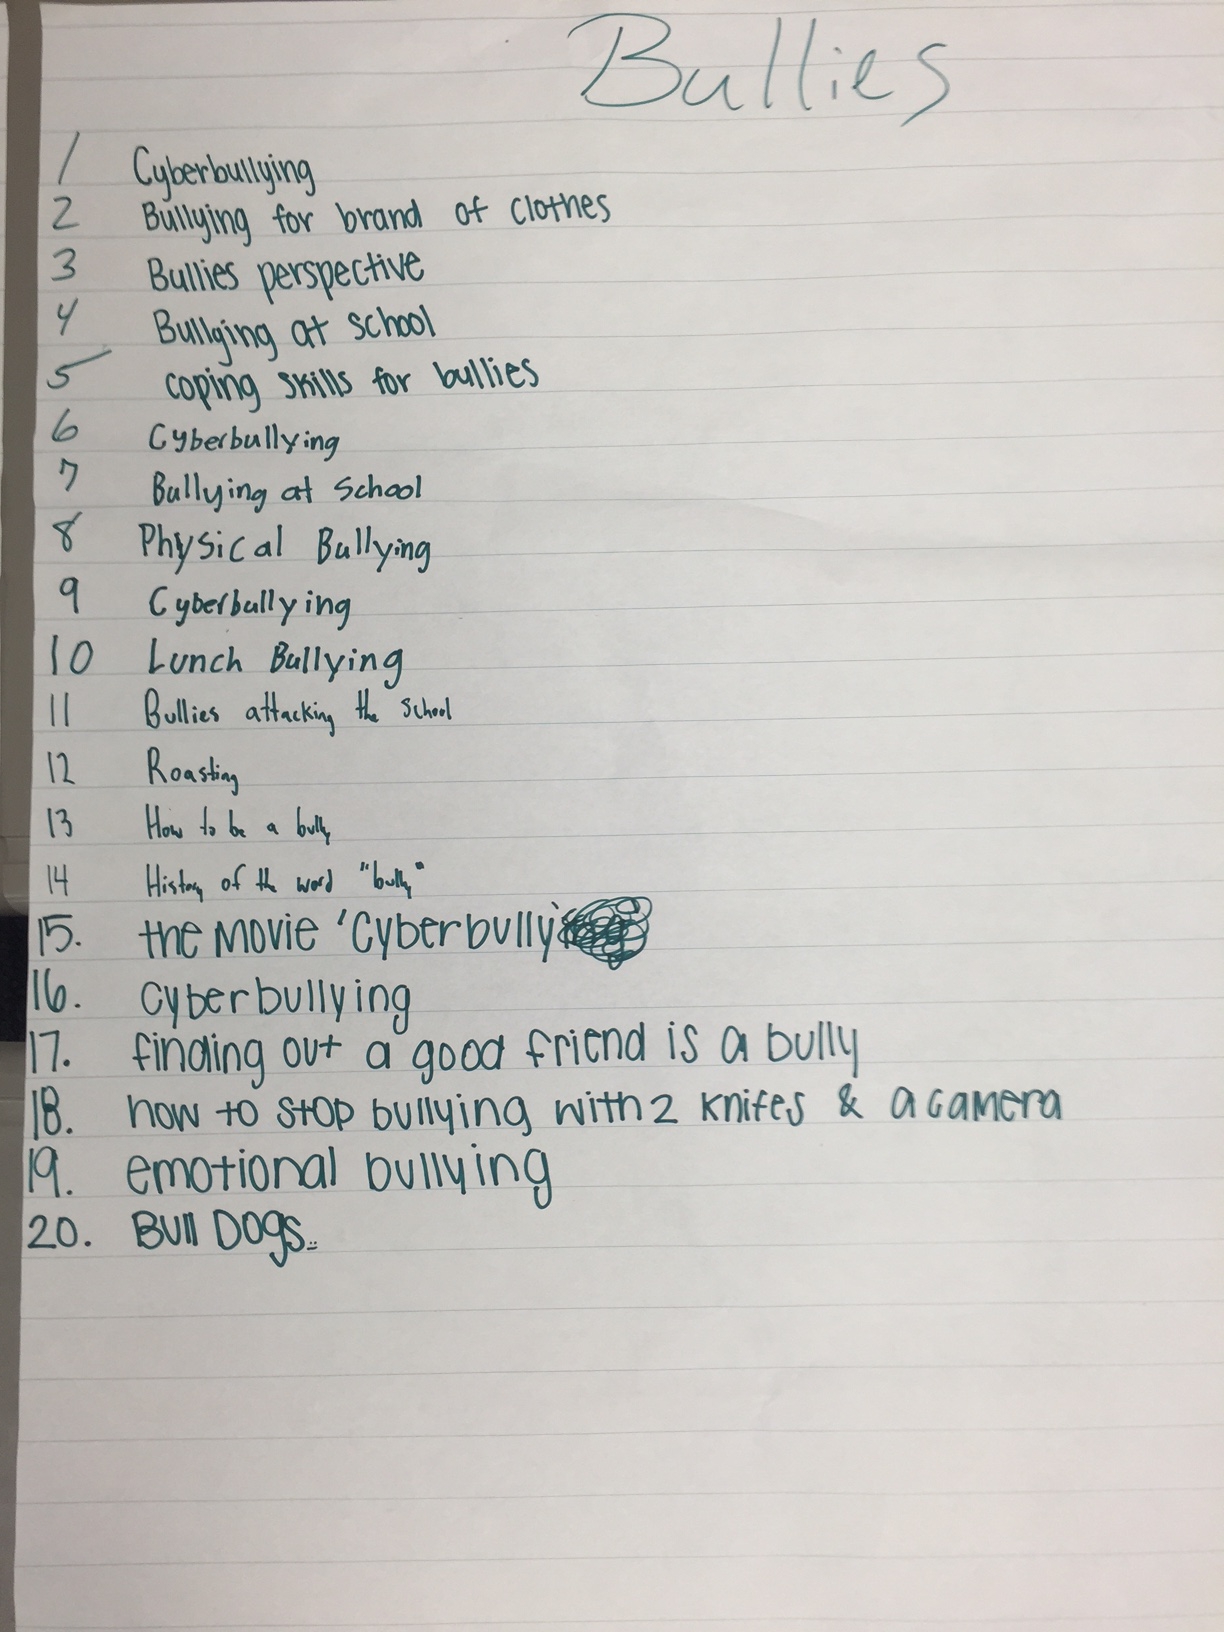 Bullies
1 Cyberbullying
2 Bullying for brand of clothes
3 Bullies perspective
4 Bullying at school
5 coping skills for bullies
6 Cyberbullying
7 Bullying at School
8 Physical Bullying
9 Cyberbullying
10 Lunch Bullying
11 Bullies attacking the School
12 Roasting
13 How to be a bully
14 History of the word "bully"
15. the movie 'Cyberbully'
16. cyberbullying
17. finding out a good friend is a bully
18. how to stop bullying with 2 knifes & a camera
19. emotional bullying
20. Bull Dogs..